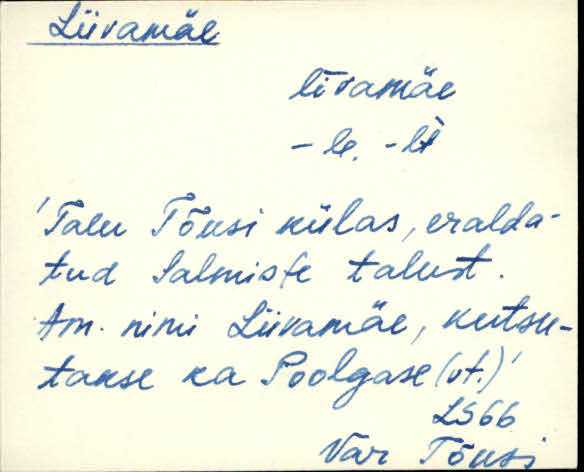 Liivamäe
līvamäe
-le. -lt
'Talu Tõusi külas, eralda-
tud Salmiste talust.
Am. nimi Liivamäe, kutsu-
takse ka Poolgase (vt.)'
LS66
Var Tõusi